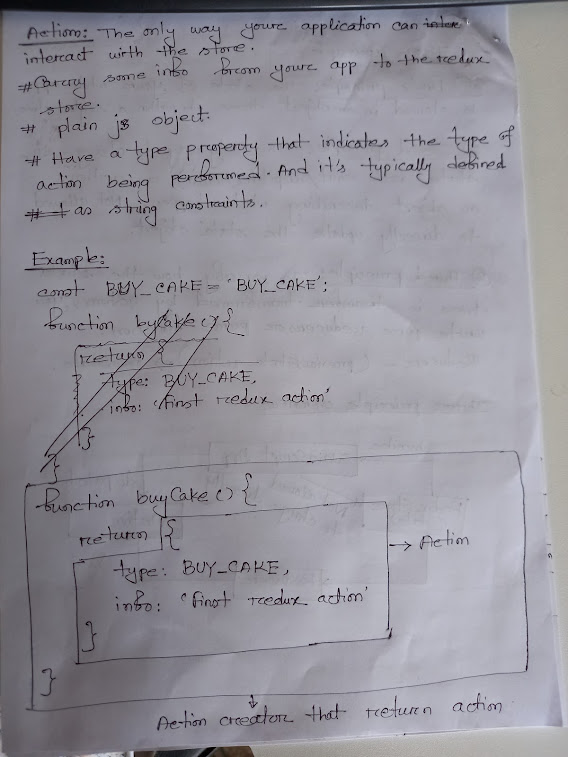 Action: The only way your application can inter
interact with the store.
# Carry some info from your app to the redux
store.
# plain js object.
# Have a type property that indicates the type of
action being performed. And it's typically defined
# as string constraints.
Example:
const BUY_CAKE = 'BUY_CAKE';
function byCake () {
return {
type: BUY_CAKE,
info: 'first redux action'
}
}
function buyCake () {
return {
type: BUY_CAKE,
→ Action
info: 'first redux action'
}
}
Action creator that return action